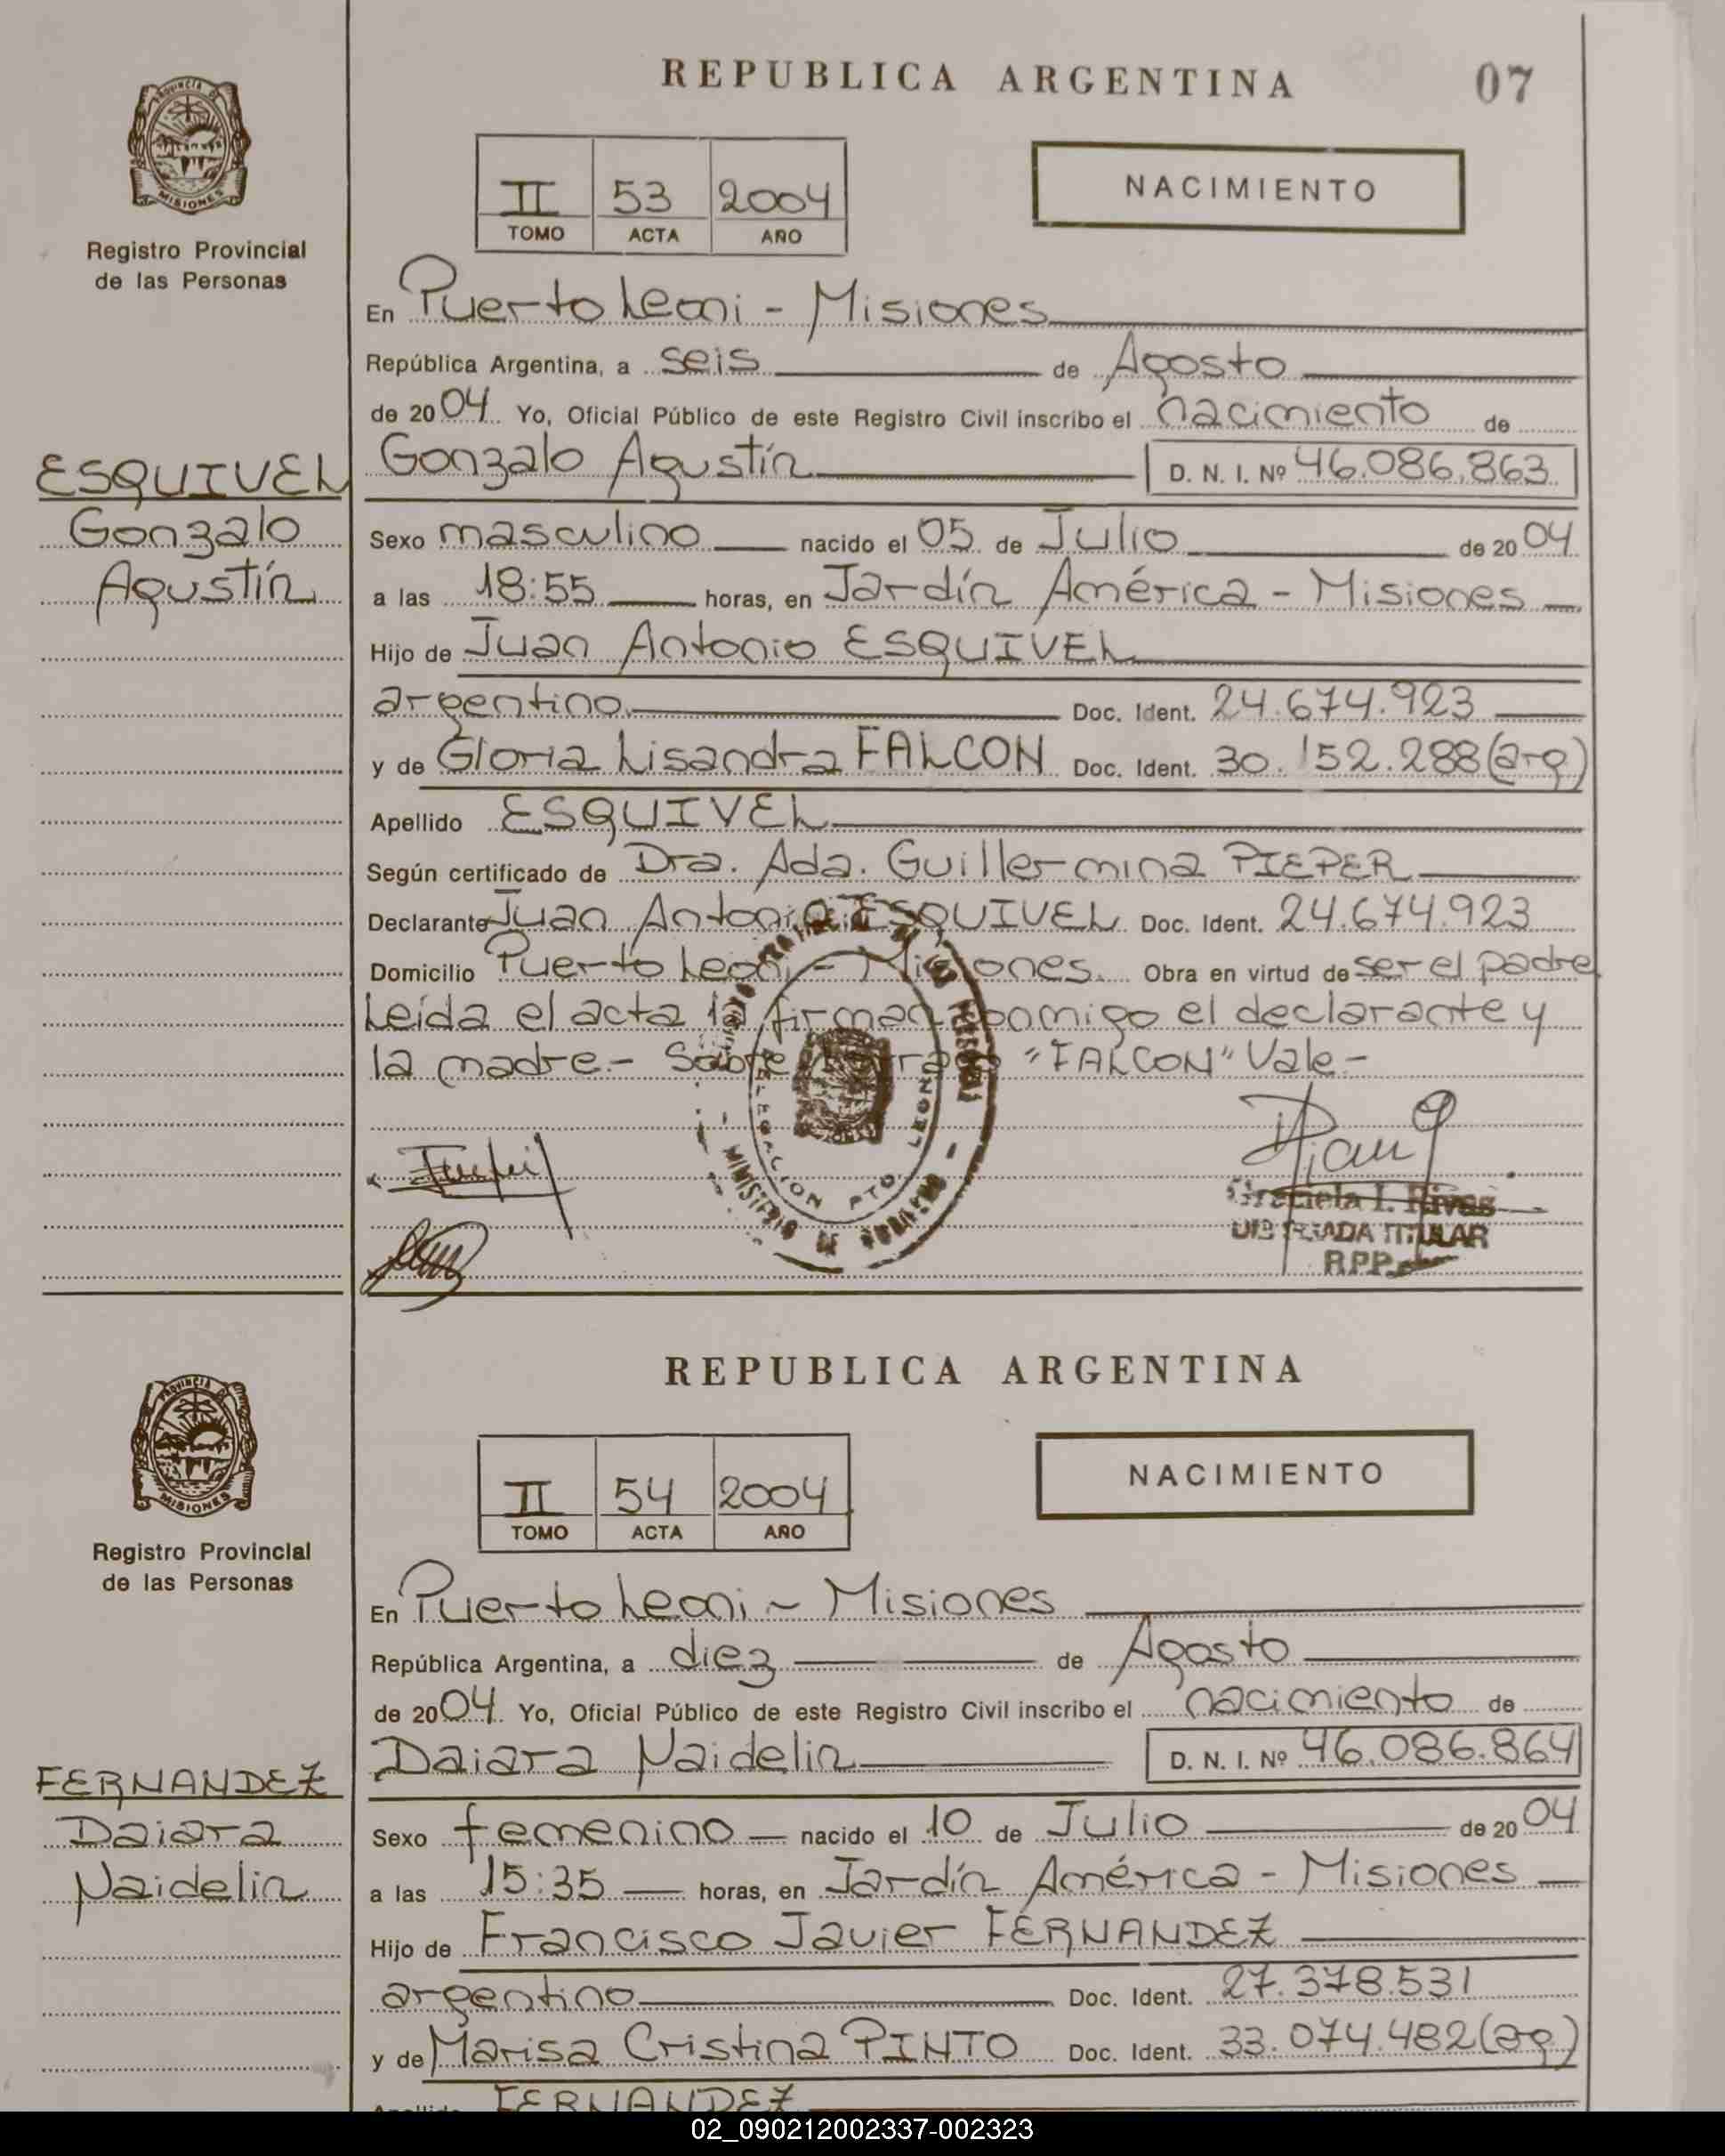 REPUBLICA ARGENTINA
07
PROVINCIA D
MISIONES
Registro Provincial
de las Personas
II 53 2004
TOMO ACTA AÑO
NACIMIENTO
En Puerto Leoni - Misiones
República Argentina, a seis de Agosto
de 2004 Yo, Oficial Público de este Registro Civil inscribo el nacimiento de
ESQUIVEL
Gonzalo
Agustín
Gonzalo Agustín D. N. I. Nº 46.086.863
Sexo masculino nacido el 05 de Julio de 2004
a las 18:55 horas, en Jardín América - Misiones
Hijo de Juan Antonio ESQUIVEL
argentino Doc. Ident. 24.674.923
y de Gloria Lisandra FALCON Doc. Ident. 30.152.288 (arg)
Apellido ESQUIVEL
Según certificado de Dra. Ada. Guillermina PIEPER
Declarante Juan Antonio ESQUIVEL Doc. Ident. 24.674.923
Domicilio Puerto Leoni - Misiones. Obra en virtud de ser el padre
Leída el acta la firman conmigo el declarante y
la madre.- Sobre "FALCON" Vale -
DELEGACION PTO LEONI
MINISTERIO DE GOBIERNO
Graciela I. Rivas
DELEGADA TITULAR
RPP
REPUBLICA ARGENTINA
PROVINCIA D
MISIONES
Registro Provincial
de las Personas
II 54 2004
TOMO ACTA AÑO
NACIMIENTO
En Puerto Leoni - Misiones
República Argentina, a diez de Agosto
de 2004 Yo, Oficial Público de este Registro Civil inscribo el nacimiento de
FERNANDEZ
Daiara
Naidelin
Daiara Naidelin D. N. I. Nº 46.086.864
Sexo femenino nacido el 10 de Julio de 2004
a las 15:35 horas, en Jardín América - Misiones
Hijo de Francisco Javier FERNANDEZ
argentino Doc. Ident. 27.378.531
y de Marisa Cristina PINTO Doc. Ident. 33.074.482 (arg)
Apellido FERNANDEZ
02_090212002337-002323